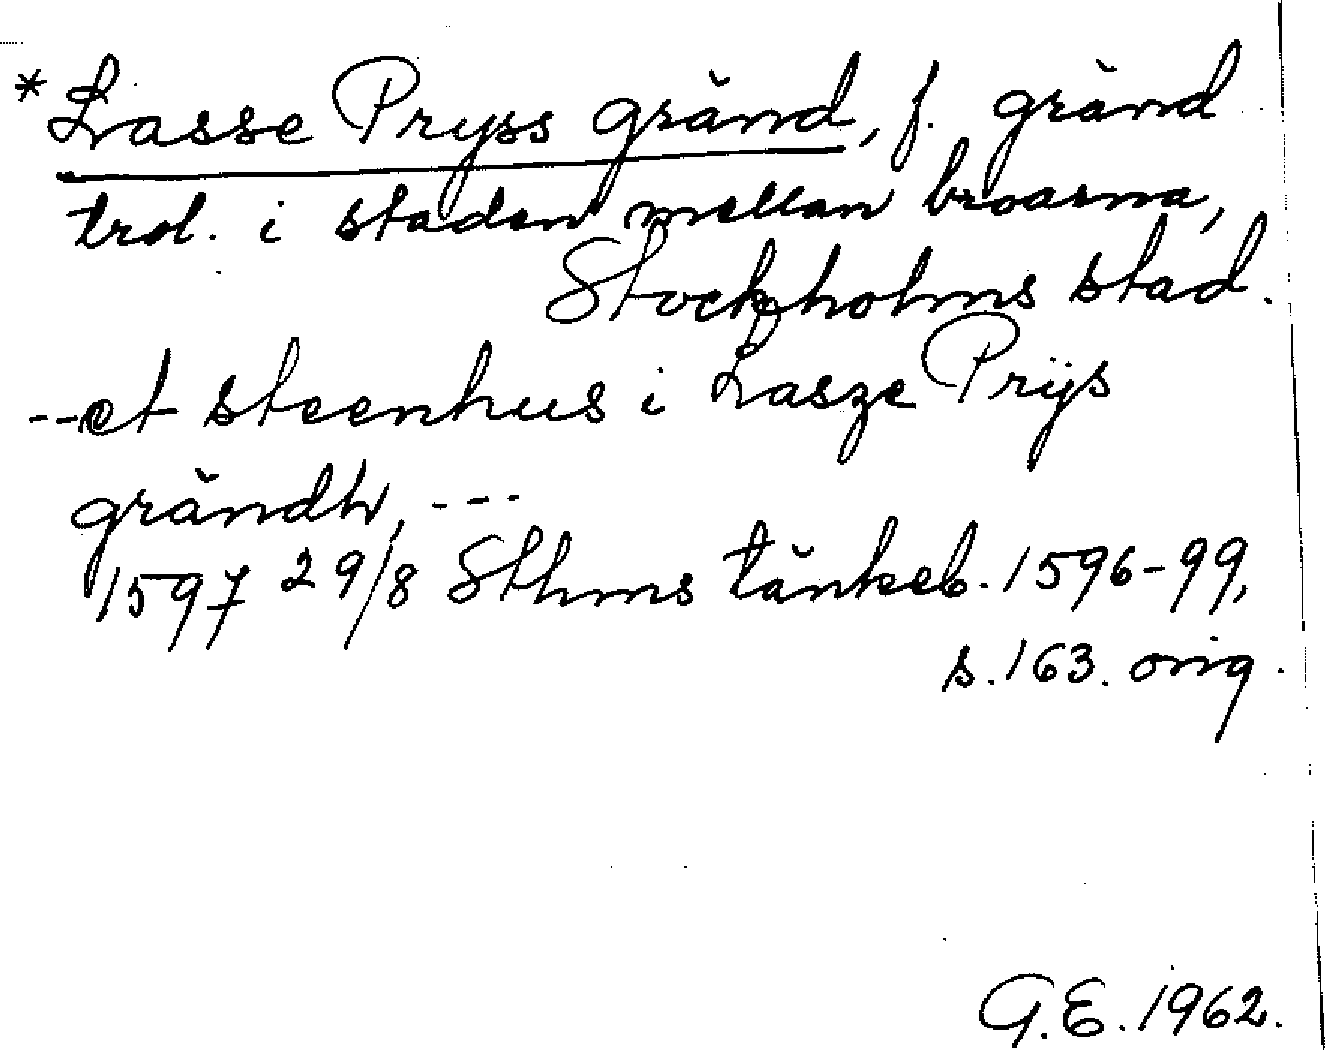 * Lasse Pryss gränd, f. gränd
trol. i staden mellan broarna,
Stockholms stad.
--et steenhus i Lasze Prijs
grändh, ---
1597 29/8 Sthms tänkeb. 1596-99,
s. 163. orig.
G.E. 1962.